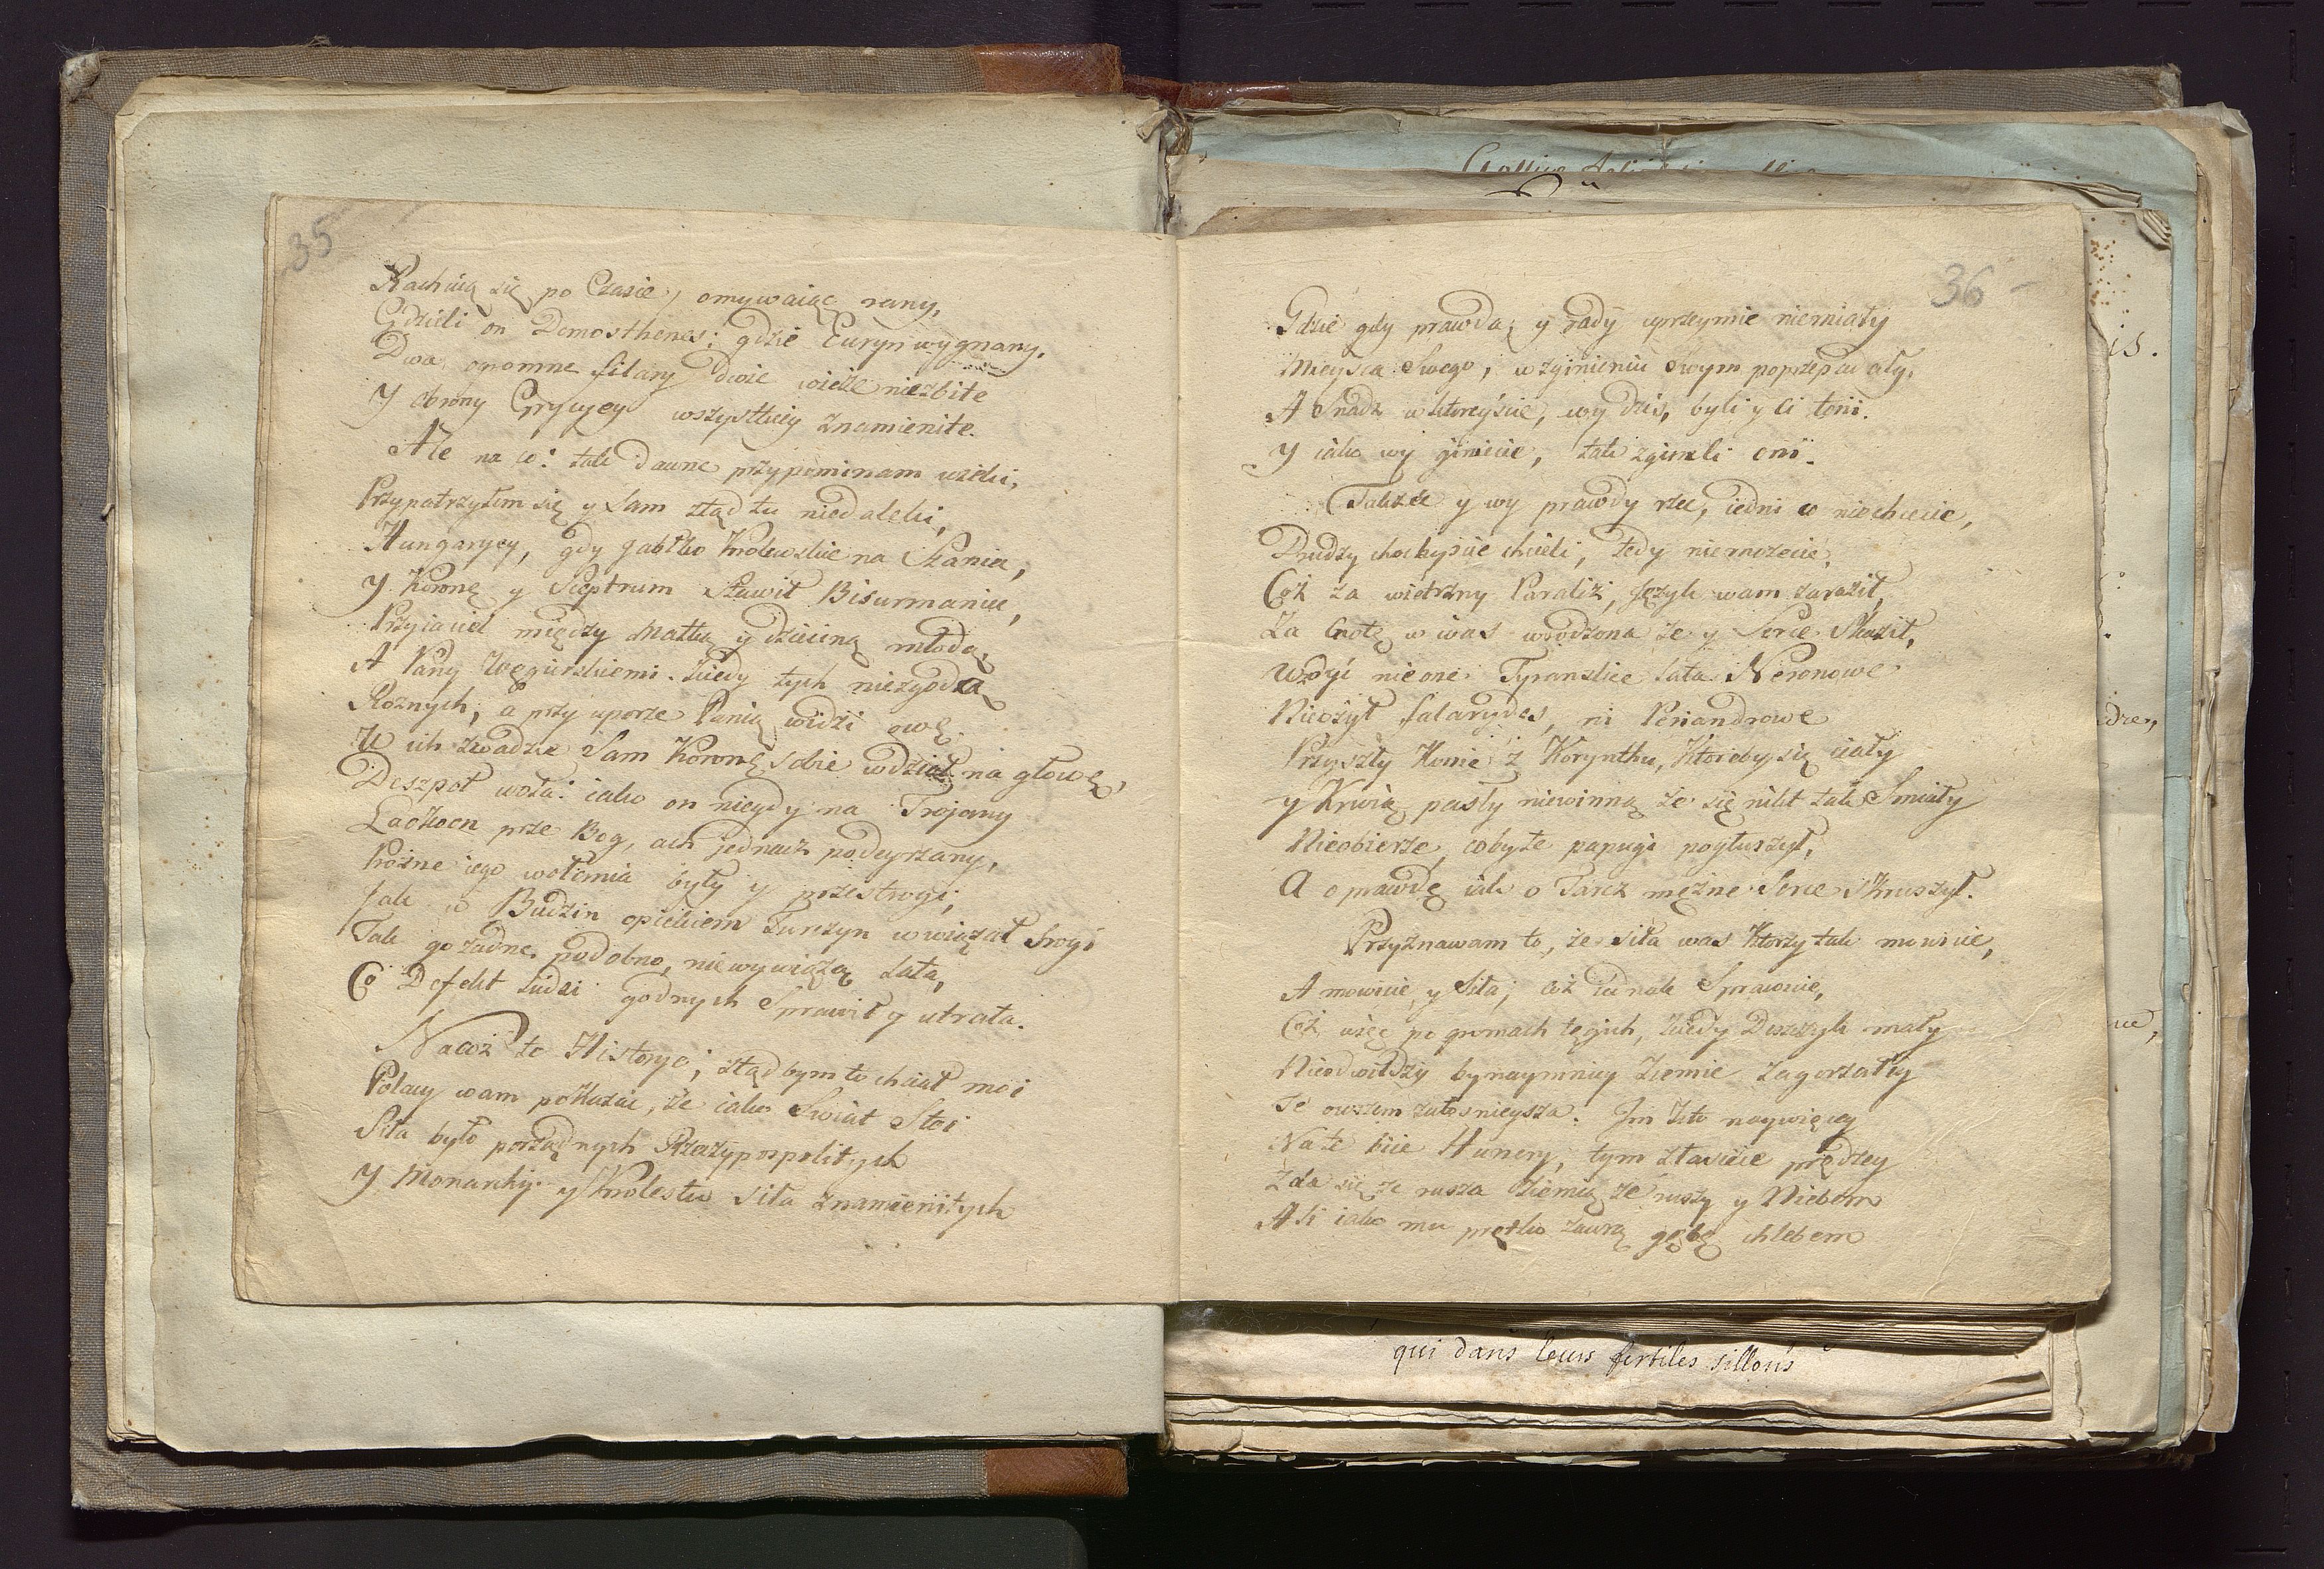 35
Rachuią się po Czasie, omywaiąc rany,
Gdzieli on Demosthenes; gdzie Euryn wygnany.
Dwa ogromne filary dwie wieże niezbite
Y obrony Grycyey wszystkiey znamienite.
Ale na co: tak dawne przypominam wieki,
Przypatrzyłem się y sam ztąd tu niedaleki,
Hungaryey, gdy Jabłko Krolewskie na Szaniec,
Y Koronę y Sceptrum Stawił Bisurmaniec,
Przyiaciel między Matką y dzieciną młodą,
A Pany Węgierskiemi. Kiedy tych niezgodą
Roznych, a przy uporze Panią widzi owę.
W ich zwadzie Sam Koronę sobie wdział na głowę,
Deszpot woła: iako on niegdy na Trojany
Laokoon prze Bog, ach jednacz podeyrzany,
Prozne iego wołania były y przestrogi,
Jak w Budzin opiekiem Turczyn wwiązał Srogi
Tak go żadne podobno, niewywiążą Lata,
Co Defekt Ludzi godnych Sprawił y utrata.
Nacoż te Historye; ztąd bym to chciał moi
Polacy wam pokazać, że iako Swiat Stoi
Siła było porządnych Rzeczypospolitych
Y Monarchiy y Krolestw siła znamienitych
36 -
Gdzie gdy prawda; y rady uprzeymie niemiały
Mieysca Swego; w zginieniu swym poprzepadały.
A Snadz w ktoreyście, wy dziś, byli y ci toni.
Y iako wy giniecie, tak zginęli oni.
Takżeć y wy prawdy rzec, iedni w niechcecie,
Drudzy chockyście chcieli, tedy niemożecie,
Coż za wietrzny Paraliż, Język wam zaraził,
Za Cnotę w was wrodzoną że y Serce Skaził,
Wzdyć nie one Tyranskie Lata Neronowe
Nieożył Falarydes, ni Periandrowe
Przyszły Konie z Koryntku, Ktoreby się ciały
y Krwią pasły niewinną że się nikt tak Smiały
Nieobierze, coby te papugi pogłuszył,
A o prawdę iak o Tarcz mężne Serce Skruszył.
Przyznawam to, że siła was Ktorzy tak mowicie,
A mowicie y Siła; coż iednak Sprawicie,
Coż więc po gromach tęgich, kiedy Deszczyk mały
Nieodwilży bynaymniey Ziemie zagorzałey
Te owszem żałosnieysza. Im kto naywięcey
Na te biie Hunery, tym ztawicie prędzey
Zda się że rusza Ziemią że ruszy y Niebem
Ali iako mu prętko zawrą gębę chlebem
qui dans leurs fertiles sillons
is.